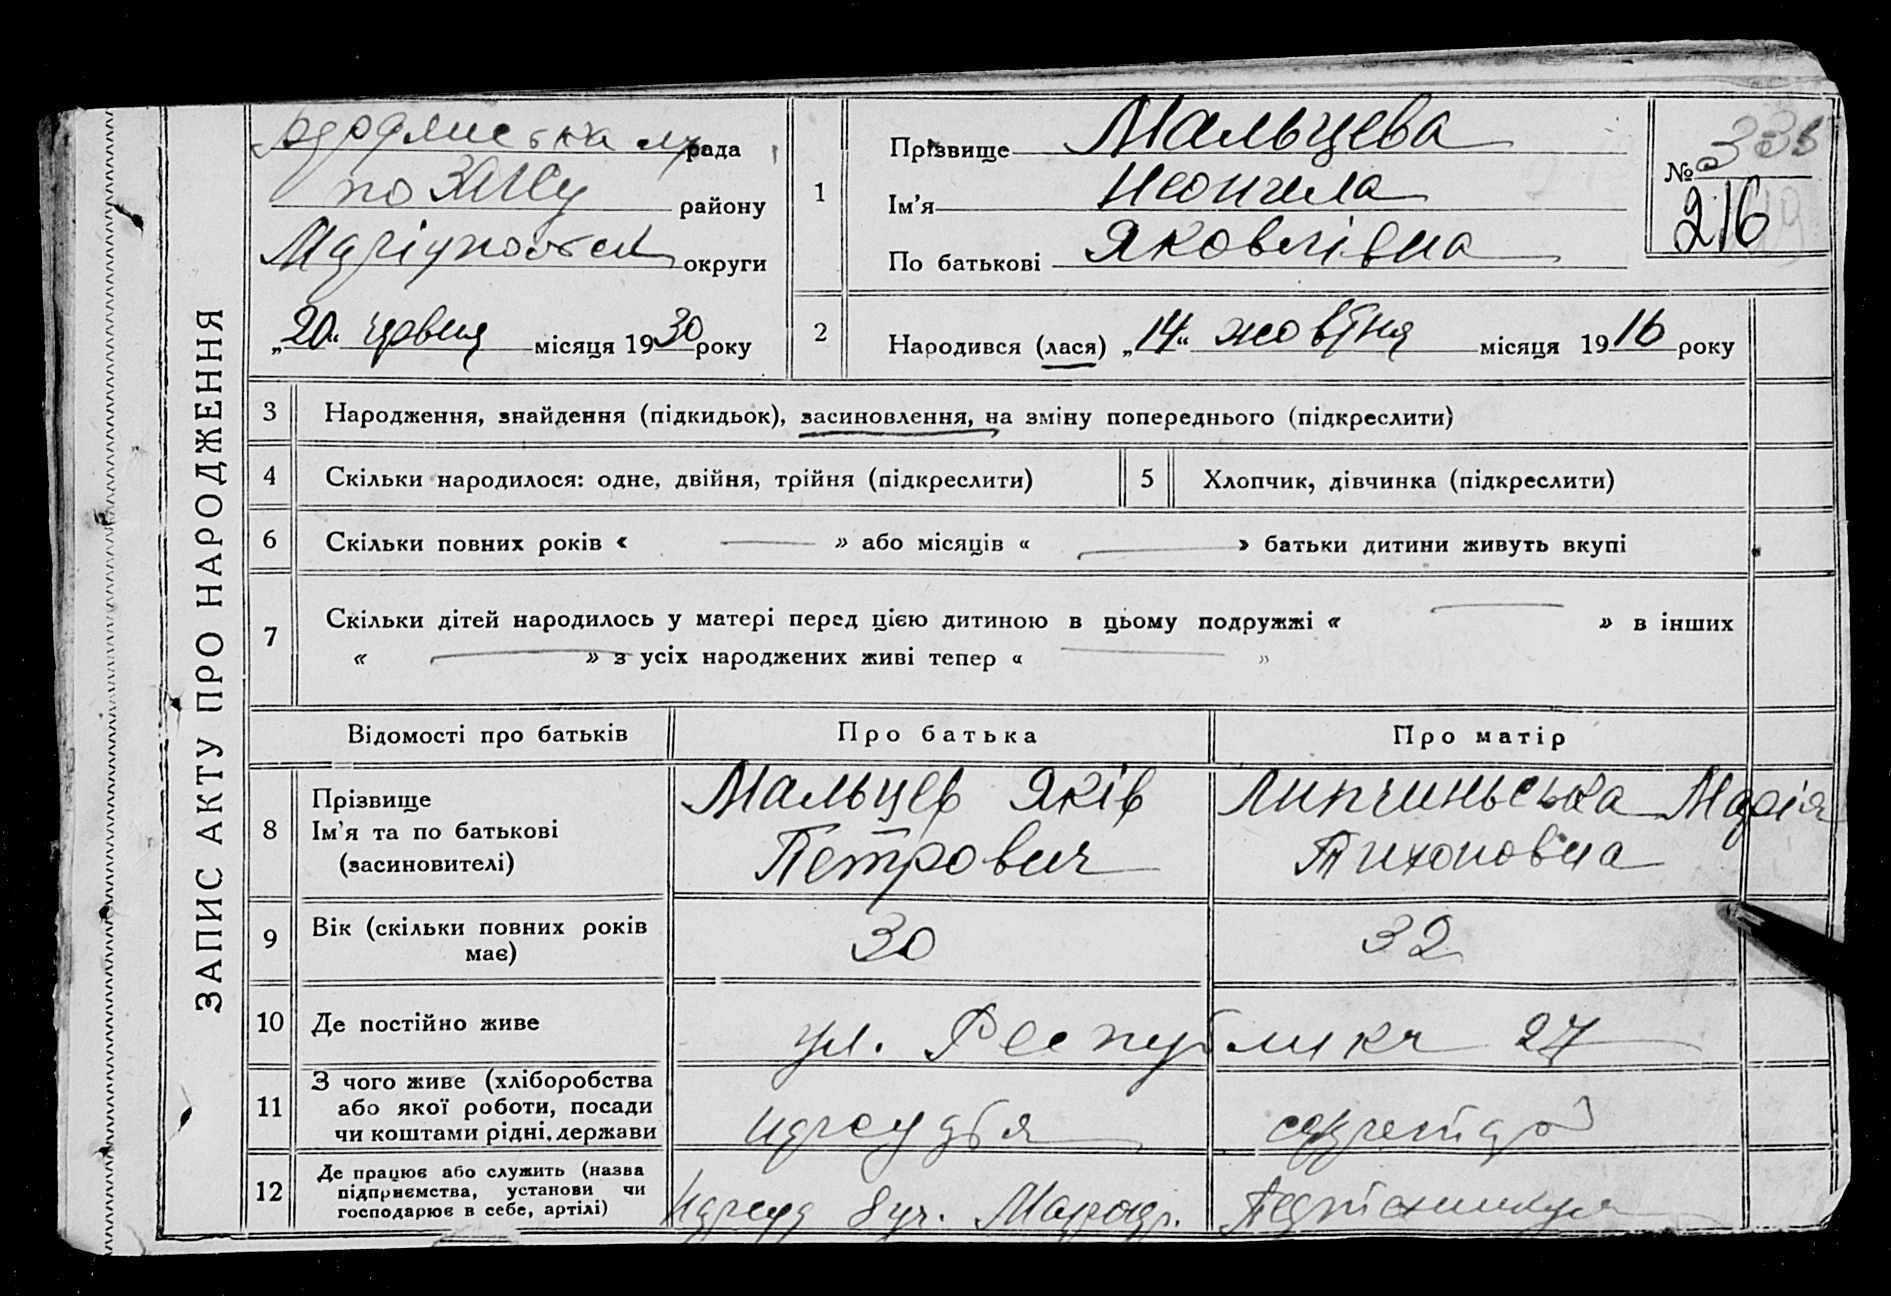 ЗАПИС АКТУ ПРО НАРОДЖЕННЯ
рада
по ЗАЦСу району
округи
„20“ червня місяця 1930 року
1
Прізвище Мальцева
Ім’я
По батькові Яковлівна
№
216
2
Народився (лася) „14“ жовтня місяця 1916 року
3 Народження, знайдення (підкидьок), засиновлення, на зміну попереднього (підкреслити)
4 Скільки народилося: одне, двійня, трійня (підкреслити) 5 Хлопчик, дівчинка (підкреслити)
6 Скільки повних років « — » або місяців « — » батьки дитини живуть вкупі
7 Скільки дітей народилось у матері перед цією дитиною в цьому подружжі « — » в інших
« — » з усіх народжених живі тепер « — »
Відомості про батьків Про батька Про матір
8 Прізвище Мальцев Яків Липчиньська Марія
Ім’я та по батькові Петрович Тихоновна
(засиновителі)
9 Вік (скільки повних років 30 32
має)
10 Де постійно живе ул. Республики 27
11 З чого живе (хліборобства
або якої роботи, посади нарсуддя
чи коштами рідні, держави
12 Де працює або служить (назва
підприємства, установи чи
господарює в себе, артілі) Нарсуд 8 уч.